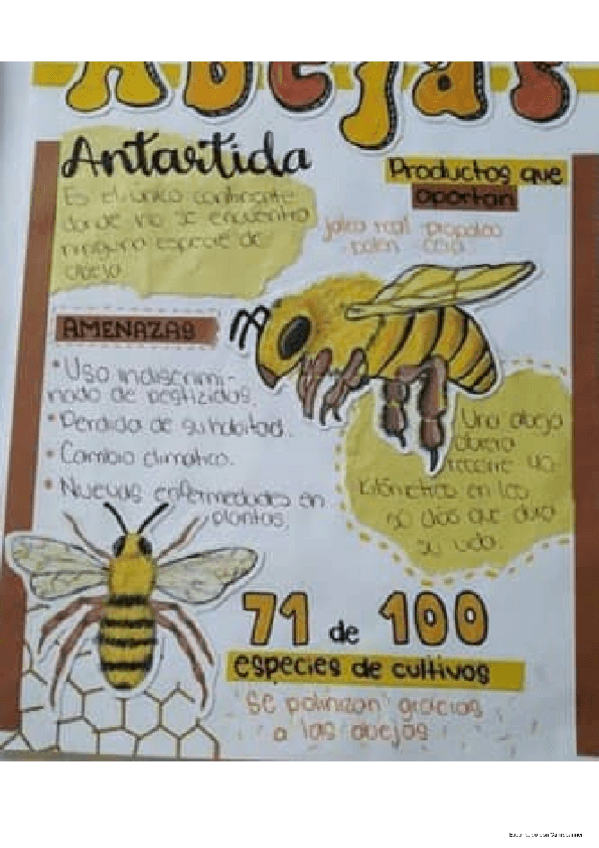 Abejas
Antartida
Es el único continente
donde no se encuentra
ninguna especie de
abeja
Productos que
aportan
jalea real propoleo
polen cera
AMENAZAS
• Uso indiscrimi-
nado de pestizidas.
• Perdida de su habitad.
• Cambio climatico.
• Nuevas enfermedades en
plantas.
Una abeja
obrera
recorre
kilómetros en los
dias que dura
su vida.
71 de 100
especies de cultivos
"Se polinizan" gracias
a las abejas